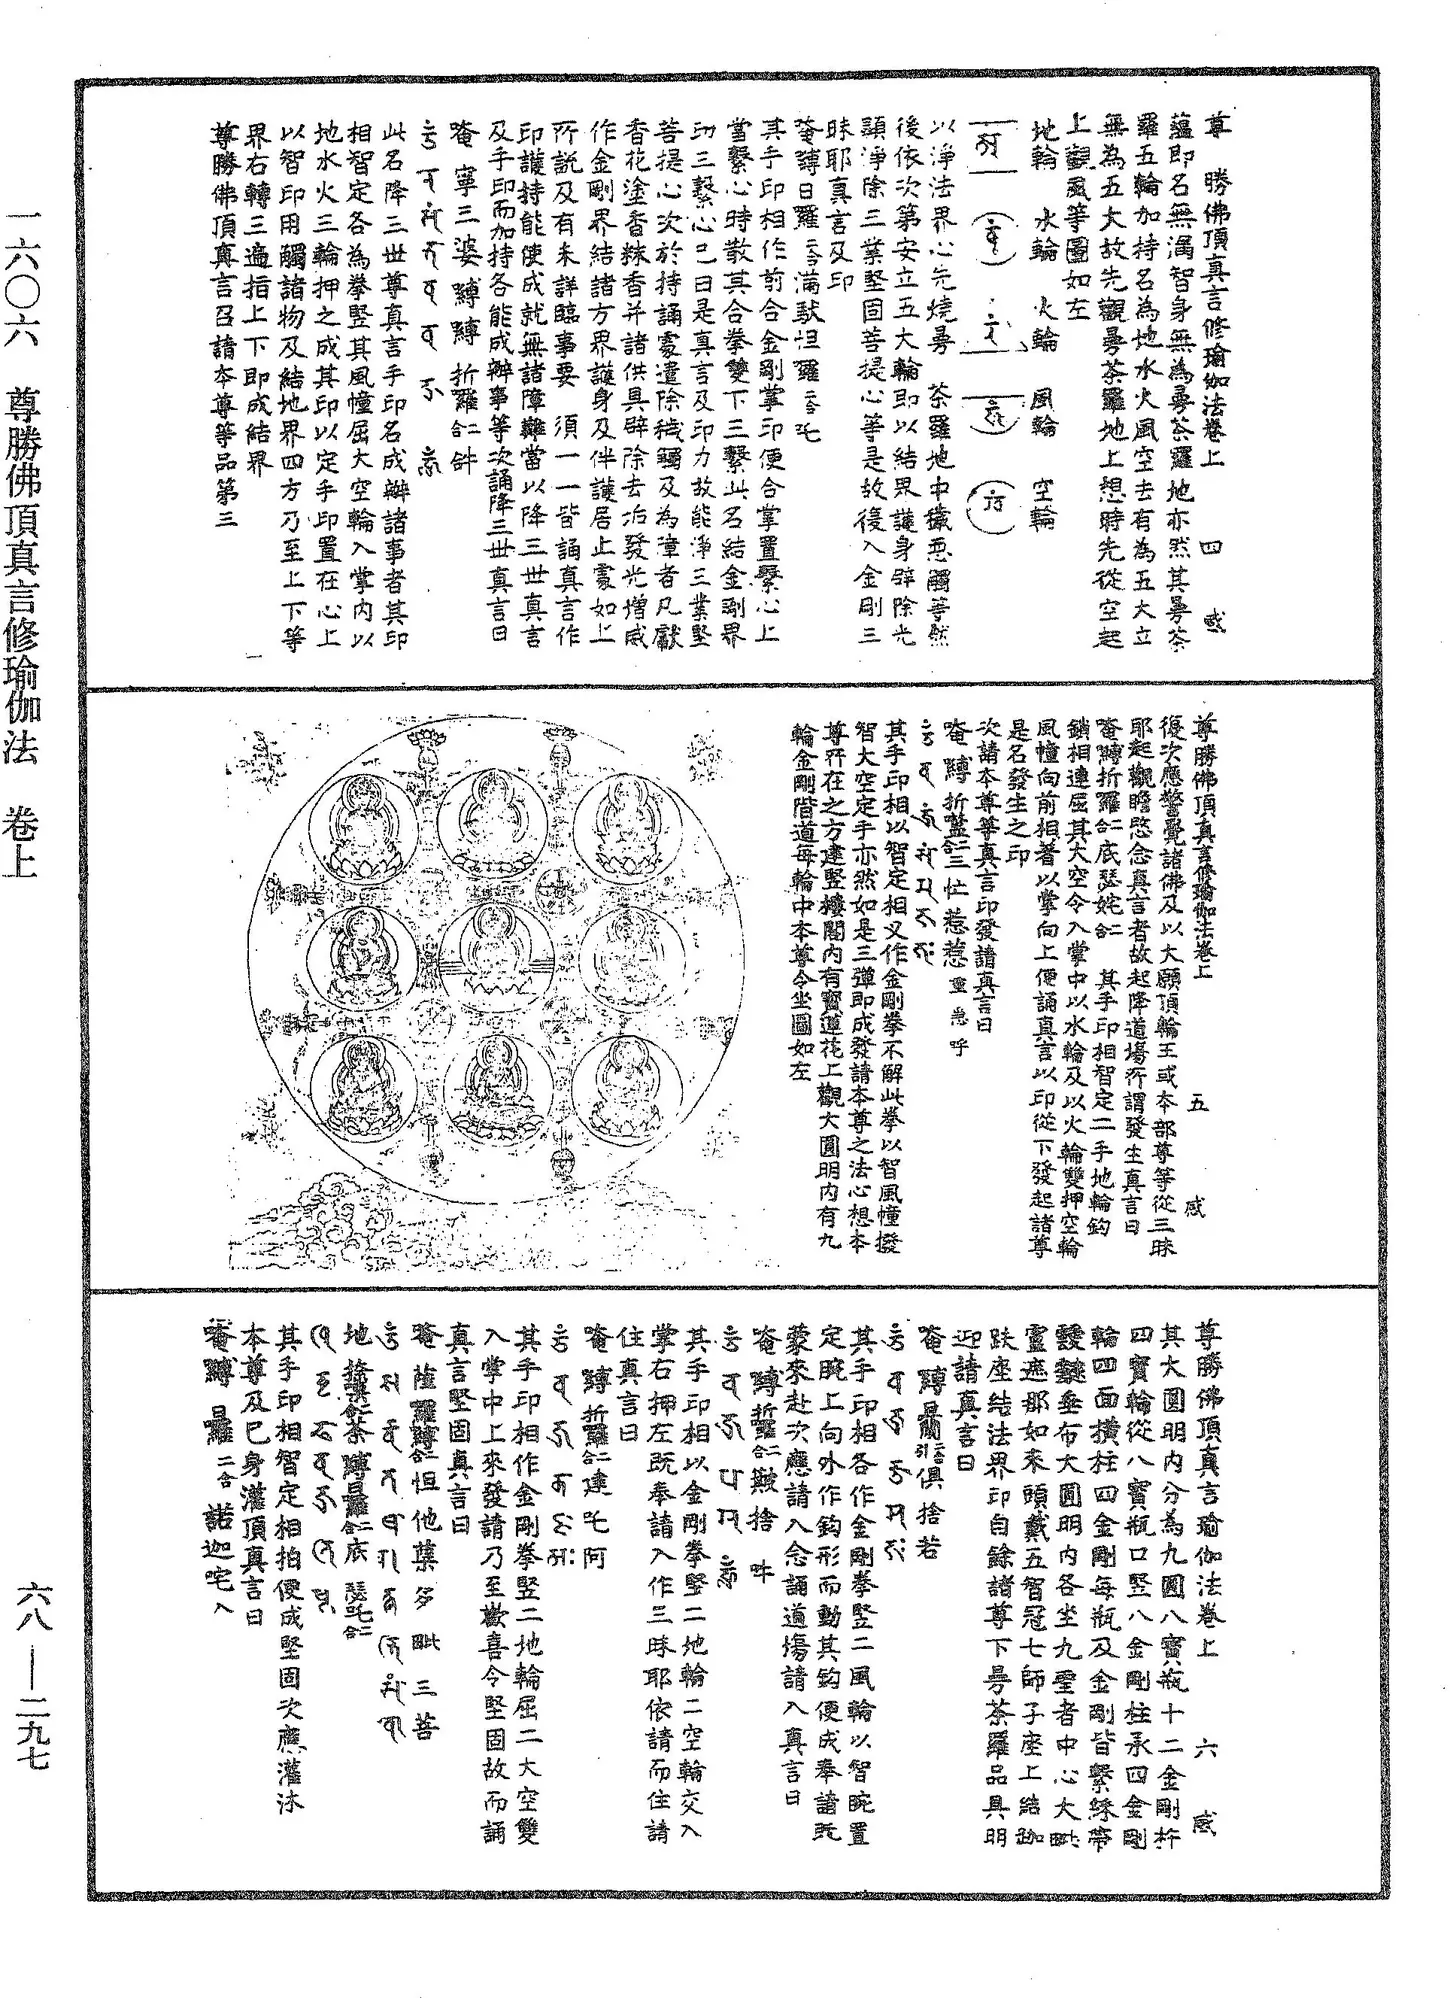 一六〇六　尊勝佛頂真言修瑜伽法　卷上
六八——二九七
尊勝佛頂真言修瑜伽法卷上　四　感
蘊即名無漏智身無為曼荼羅地亦然其曼荼
羅五輪加持名為地水火風空去有為五大立
無為五大故先觀曼荼羅地上想時先從空起
上觀風等圖如左
地輪　水輪　火輪　風輪　空輪
以淨法界心先燒曼　荼羅地中穢惡觸等然
後依次第安立五大輪即以結界護身辟除光
顯淨除三業堅固菩提心等是故復入金剛三
昧耶真言及印
唵縛日羅二合滿馱怛羅二合吒
其手印相作前合金剛掌印便合掌置繫心上
當繫心時散其合拳雙下三繫此名結金剛界
印三繫心已曰是真言及印力故能淨三業堅
菩提心次於持誦處遣除穢觸及為障者凡獻
香花塗香粖香并諸供具辟除去治發光增威
作金剛界結諸方界護身及伴護居止處如上
所説及有未詳臨事要　須一一皆誦真言作
印護持能使成就無諸障難當以降三世真言
及手印而加持各能成辦事等次誦降三世真言曰
唵　寧三婆　縛縛　折羅二合　𤙖
此名降三世尊真言手印名成辦諸事者其印
相智定各為拳竪其風幢屈大空輪入掌内以
地水火三輪押之成其印以定手印置在心上
以智印用觸諸物及結地界四方乃至上下等
界右轉三遍指上下即成結界
尊勝佛頂真言召請本尊等品第三
尊勝佛頂真言修瑜伽法卷上　五　感
復次應警覺諸佛及以大願頂輪王或本部尊等從三昧
耶起觀瞻愍念真言者故起降道場所謂發生真言曰
唵縛折羅二合底瑟姹二合　其手印相智定二手地輪鈎
鎖相連屈其大空令入掌中以水輪及以火輪雙押空輪
風幢向前相著以掌向上便誦真言以印從下發起諸尊
是名發生之印
次請本尊等真言印發請真言曰
唵　縛　折藍二合三　忙　惹　惹　重　急　呼
其手印相以智定相叉作金剛拳不解此拳以智風幢撥
智大空定手亦然如是三彈即成發請本尊之法心想本
尊所在之方建竪樓閣内有寶蓮花上觀大圓明内有九
輪金剛階道每輪中本尊令坐圖如左
尊勝佛頂真言瑜伽法卷上　六　感
其大圓明内分為九圓八寶瓶十二金剛杵
四寶輪從八寶瓶口竪八金剛柱承四金剛
輪四面橫柱四金剛每瓶及金剛皆繫綵帶
垂布大圓明内各坐九聖者中心大毗
盧遮那如來頭戴五智冠七師子座上結跏
趺座結法界印自餘諸尊下曼荼羅品具明
迎請真言曰
唵　縛日𮥼二合引　俱　捨　若
其手印相各作金剛拳竪二風輪以智腕置
定腕上向外作鈎形而動其鈎便成奉請既
蒙來赴次應請入念誦道場請入真言曰
唵　縛折羅二合　皤　捨　吽
其手印相以金剛拳竪二地輪二空輪交入
掌右押左既奉請入作三昧耶依請而住請
住真言曰
唵　縛　折羅二合　達　吒　阿
其手印相作金剛拳竪二地輪屈二大空雙
入掌中上來發請乃至歡喜令堅固故而誦
真言堅固真言曰
唵　薩　羅縛二合　怛　他　蘖　多　毗　三　菩
地　荼　縛日羅二合　底　瑟吒二合
其手印相智定相拍便成堅固次應灌沐
本尊及已身灌頂真言曰
唵　縛　日羅　二合　諾　迦　咤　入